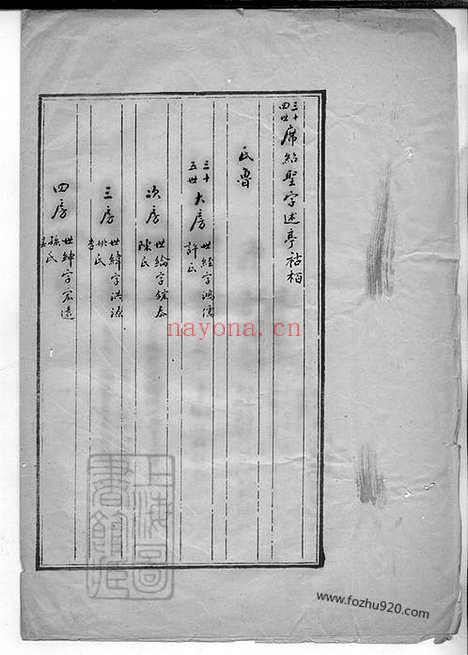 三十四世 席紹聖字述亭祜栢
氏魯
三十五世 大房 世經字鴻儒
許氏
次房 世綸字錦泰
陳氏
三房 世緯字洪源
姚氏
李
四房 世紳字宏遠
孫氏
nayona.cn
上海圖書館藏
www.fozhu920.com